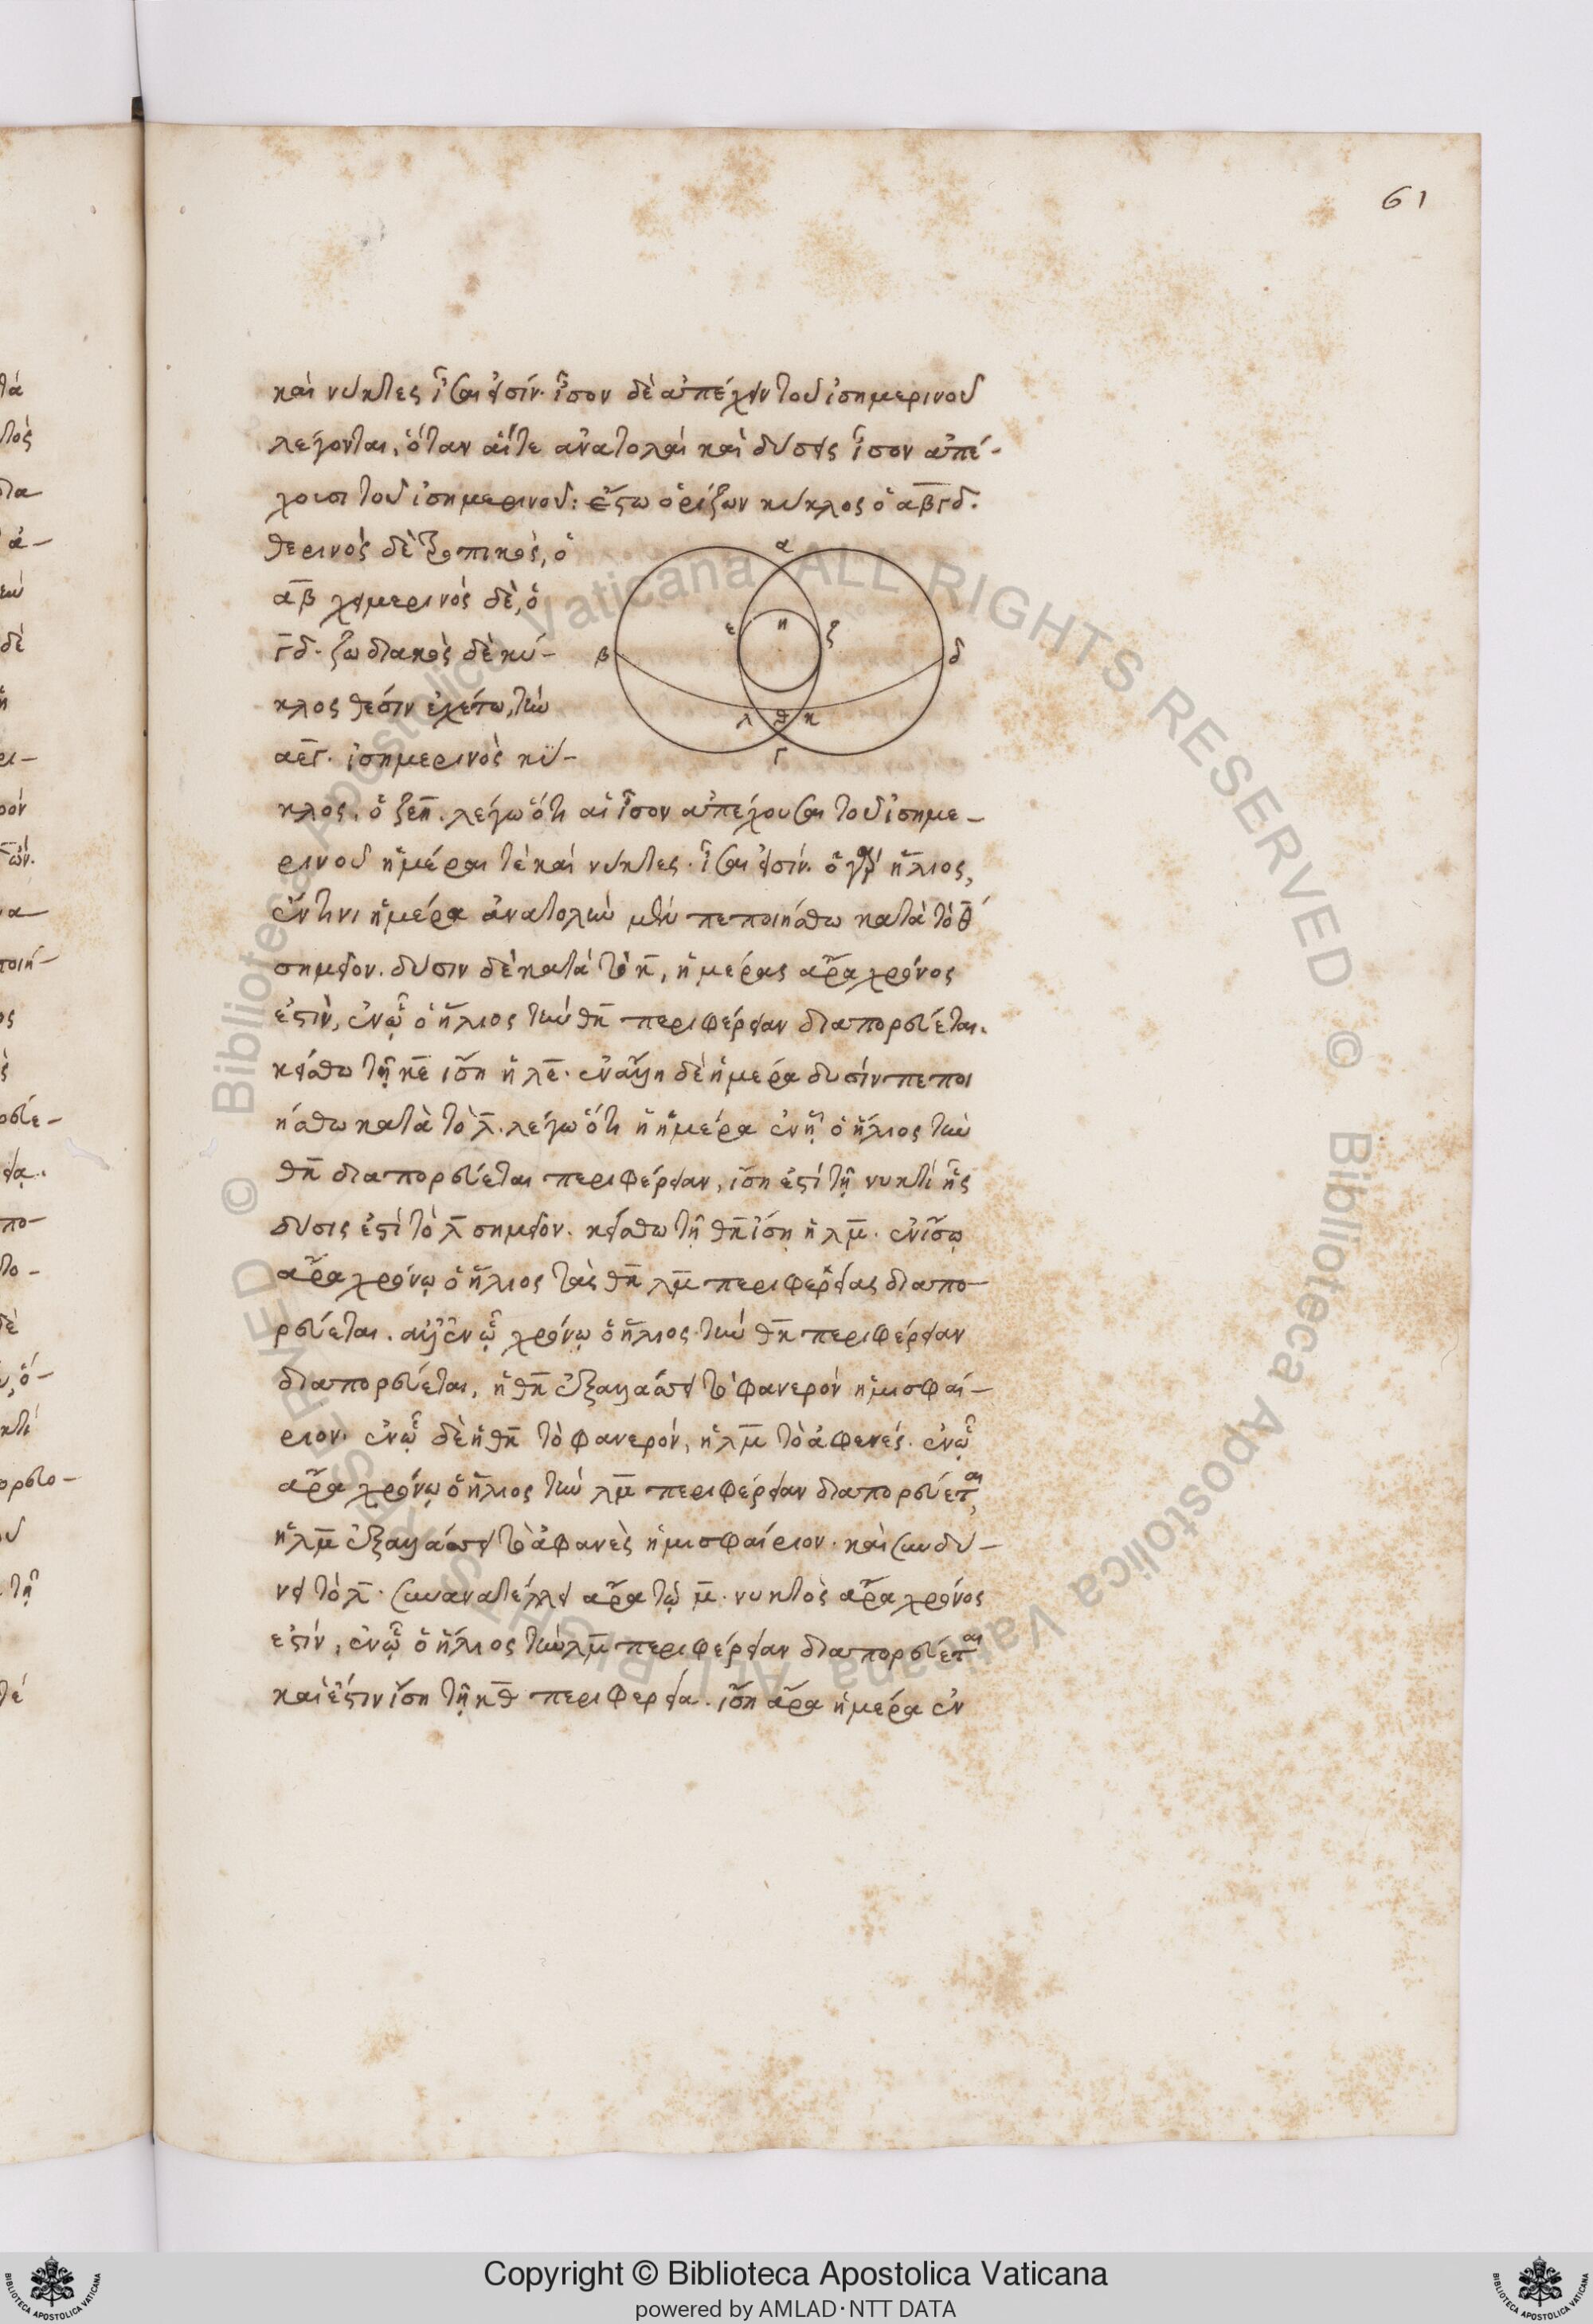 61
καὶ νύκτες ἴσαι εἰσίν. ἴσον δὲ ἀπέχειν τοῦ ἰσημερινοῦ
λέγονται, ὅταν αἵτε ἀνατολαὶ καὶ δύσεις ἴσον ἀπέ-
χουσι τοῦ ἰσημερινοῦ: ἔστω ὁρίζων κύκλος ὁ αβγδ.
θερινὸς δὲ τροπικὸς, ὁ
αβ χειμερινὸς δὲ, ὁ
γδ. ζωδιακὸς δὲ κύ-
κλος θέσιν ἐχέτω, τὴν
αεγ. ἰσημερινὸς κύ-
κλος. ὁ ζεη. λέγω ὅτι αἱ ἴσον ἀπέχουσαι τοῦ ἰσημε-
ρινοῦ ἡμέραι τὲ καὶ νύκτες. ἴσαι εἰσίν. ὁ γὰρ ἥλιος,
ἔν τινι ἡμέρα ἀνατολὴν μὲν πεποιήσθω κατὰ τὸ θ
σημεῖον. δύσιν δὲ κατὰ τὸ κ, ἡμέρας ἄρα χρόνος
ἐστὶν, ἐν ᾧ ὁ ἥλιος τὴν θκ περιφέρειαν διαπορεύεται.
κείσθω τῇ κε ἴση ἡ λε. ἐν ἄλλη δὲ ἡμέρα δυσίν πεποι
ήσθω κατὰ τὸ λ. λέγω ὅτι ἡ ἡμέρα ἐν ᾗ ὁ ἥλιος τὴν
θκ διαπορεύεται περιφέρειαν, ἴση ἐστί τῇ νυκτὶ ἧς
δυσις ἐστὶ τὸ λ σημεῖον. κείσθω τῇ θκ ἴση ἡ λμ. ἐν ἴσῳ
ἄρα χρόνῳ ὁ ἥλιος τὰς θκ λμ περιφερείας διαπο-
ρεύεται. ἀλλ' ἐν ᾧ χρόνῳ ὁ ἥλιος τὴν θκ περιφέρειαν
διαπορεύεται, ἡ θκ ἐξαλλάσσει τὸ φανερὸν ἡμισφαί-
ριον. ἐν ᾧ δὲ ἡ θκ τὸ φανερόν, ἡ λμ τὸ ἀφενές. ἐν ᾧ
ἄρα χρόνῳ ὁ ἥλιος τὴν λμ περιφέρειαν διαπορεύεται,
ἡ λμ ἐξαλλάσσει τὸ ἀφανὲς ἡμισφαίριον. καὶ συνδύ-
νει τὸ λ. συνανατέλλει ἄρα τῷ μ. νυκτὸς ἄρα χρόνος
ἐστίν, ἐν ᾧ ὁ ἥλιος τὴν λμ περιφέρειαν διαπορεύεται
καὶ ἐστιν ἴση τῇ κθ περιφερεία. ἴση ἄρα ἡμέρα ἐν
α
ε
η
ζ
β
δ
λ
θ
κ
γ
Copyright © Biblioteca Apostolica Vaticana
powered by AMLAD·NTT DATA